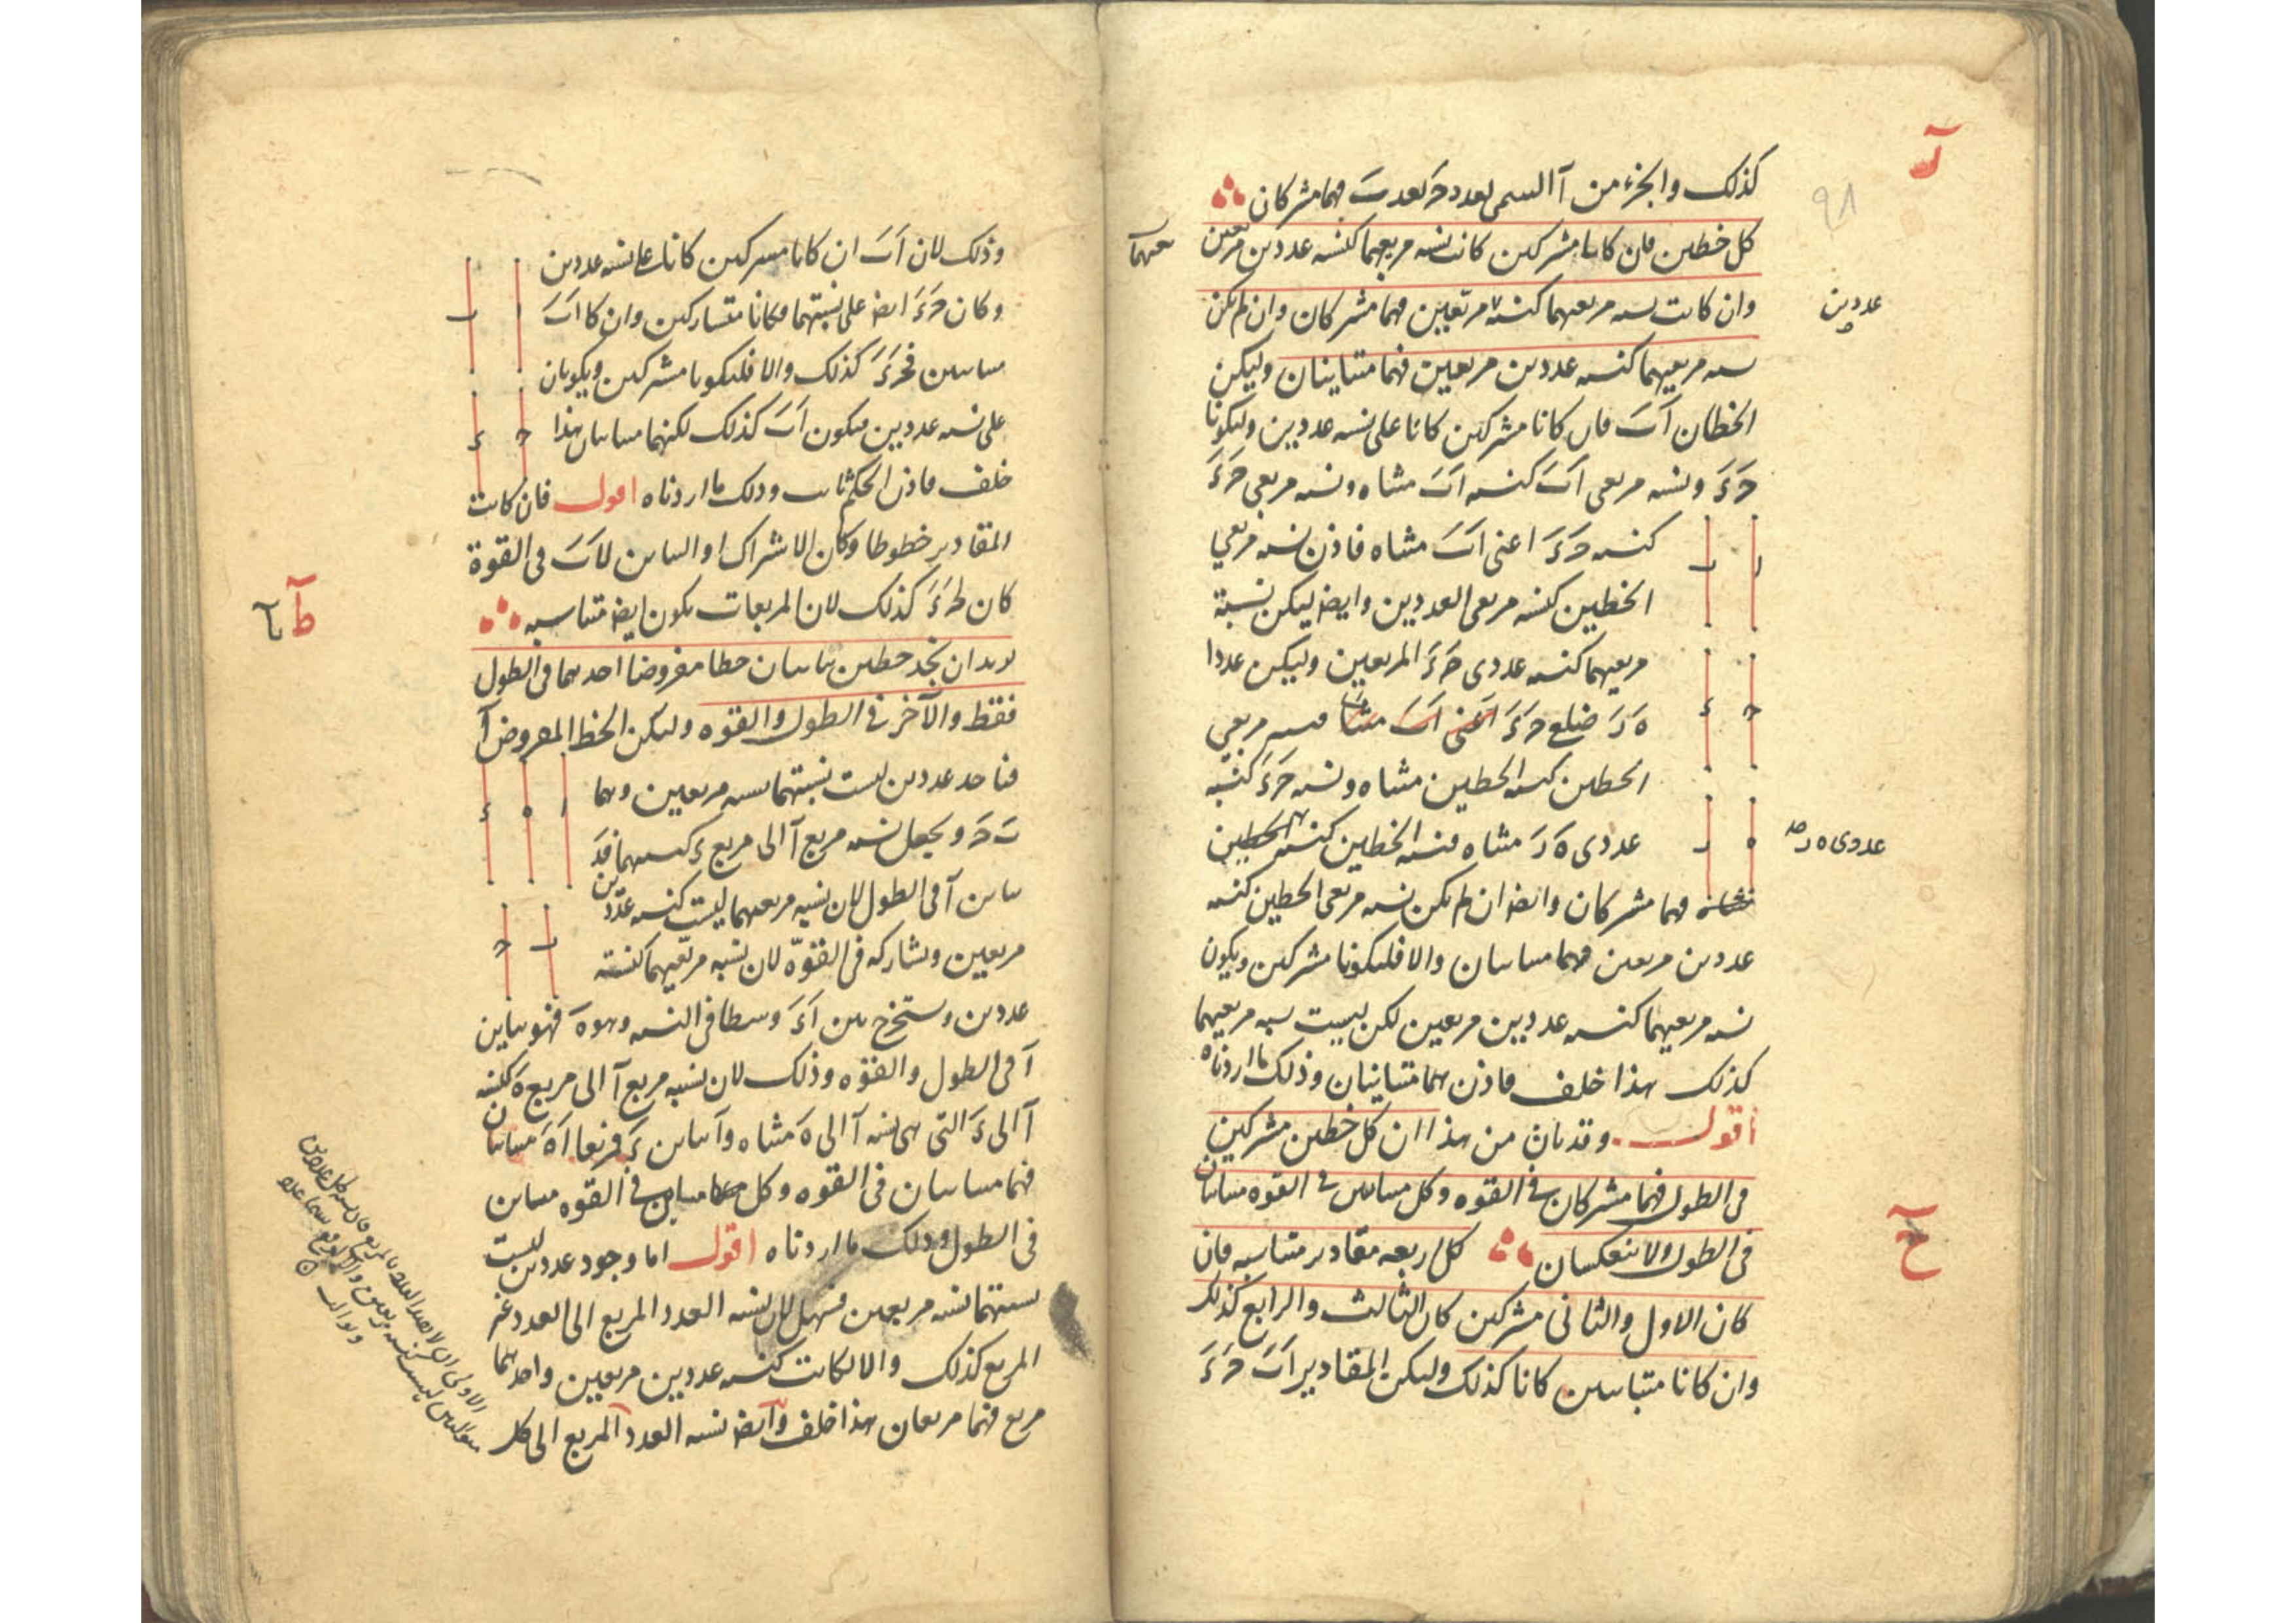 كذلك والجزء من آ السمى بعدد حَ يعد بَ فهما مشتركان
كل خطين فان كانا مشتركين كانت نسبة مربعيهما كنسبة عددين مربعين
وان كانت نسبة مربعيهما كنسبة مربعين فهما مشتركان وان لم يكن
عددين
نسبة مربعيهما كنسبة عددين مربعين فهما متباينان وليكن
الخطان اَبَ فان كانا مشتركين كانا على نسبة عددين وليكونا
حَ ءَ ونسبة مربعى اَبَ كنسبة اَبَ مثناه ونسبة مربعى حَ ءَ
كنسبة حَ ءَ اعنى اَبَ مثناه فاذن نسبة مربعي
الخطين كنسبة مربعى العددين وايضا ليكن نسبة
مربعيهما كنسبة عددى حَ ءَ المربعين وليكن عددا
هَ رَ ضلع حَ ءَ اعنى اَبَ فنسبة مربعي
الخطين كنسبة الخطين مثناه ونسبة حَ ءَ كنسبة
عددى هَ رَ مثناه فنسبة الخطين كنسبة الخطين
عددى ه ر صح
فهما مشتركان وايضا ان لم يكن نسبة مربعى الخطين كنسبة
عددين مربعين فهما متباينان والا فليكونا مشتركين ويكون
نسبة مربعيهما كنسبة عددين مربعين لكن ليست نسبة مربعيهما
كذلك هذا خلف فاذن هما متباينان وذلك ما اردناه
اقول وقد بان من هذا ان كل خطين مشتركين
فى الطول فهما مشتركان فى القوه وكل متباينين فى القوه متباينان
فى الطول ولا ينعكسان كل اربعه مقادير متناسبه فان
ح
كان الاول والثانى مشتركين كان الثالث والرابع كذلك
وان كانا متباينين كانا كذلك وليكن المقادير اَبَ حَ ءَ
وذلك لان اَبَ ان كانا مشتركين كانا على نسبة عددين
وكان حَ ءَ ايضا على نسبتهما فكانا متشاركين وان كانا اَبَ
متباينين فحَ ءَ كذلك والا فليكونا مشتركين ويكونان
على نسبة عددين فيكون اَبَ كذلك لكنهما متباينان هذا
خلف فاذن الحكم ثابت وذلك ما اردناه اقول فان كانت
المقادير خطوطا وكان الاشتراك او التباين لاَبَ فى القوة
كان لحَ ءَ كذلك لان المربعات يكون ايضا متناسبه
ط
نريد ان نجد خطين يباينان خطا مفروضا احدهما فى الطول
فقط والآخر فى الطول والقوه وليكن الخط المفروض آ
فناخذ عددين ليست نسبتهما نسبة مربعين وهما
بَ حَ ونجعل نسبة مربع آ الى مربع ءَ كنسبتهما فءَ
يباين آ فى الطول لان نسبة مربعيهما ليست كنسبة عددين
مربعين ويشاركه فى القوّه لان نسبة مربّعيهما كنسبة
عددين ونستخرج بين اَ ءَ وسطا فى النسبة وهو هَ فهو يباين
آ فى الطول والقوه وذلك لان نسبة مربع آ الى مربع هَ كنسبة
آ الى ءَ التى هى نسبة آ الى هَ مثناه وآ يباين ءَ فمربعا اَ هَ متباينان
فهما متباينان فى القوه وكل متباين فى القوه مباين
فى الطول وذلك ما اردناه اقول اما وجود عددين ليست
نسبتهما نسبة مربعين فسهل لان نسبة العدد المربع الى العدد غير
المربع كذلك والا لكانت كنسبة عددين مربعين واحدهما
مربع فهما مربعان هذا خلف وايضا نسبة العدد المربع الى كل